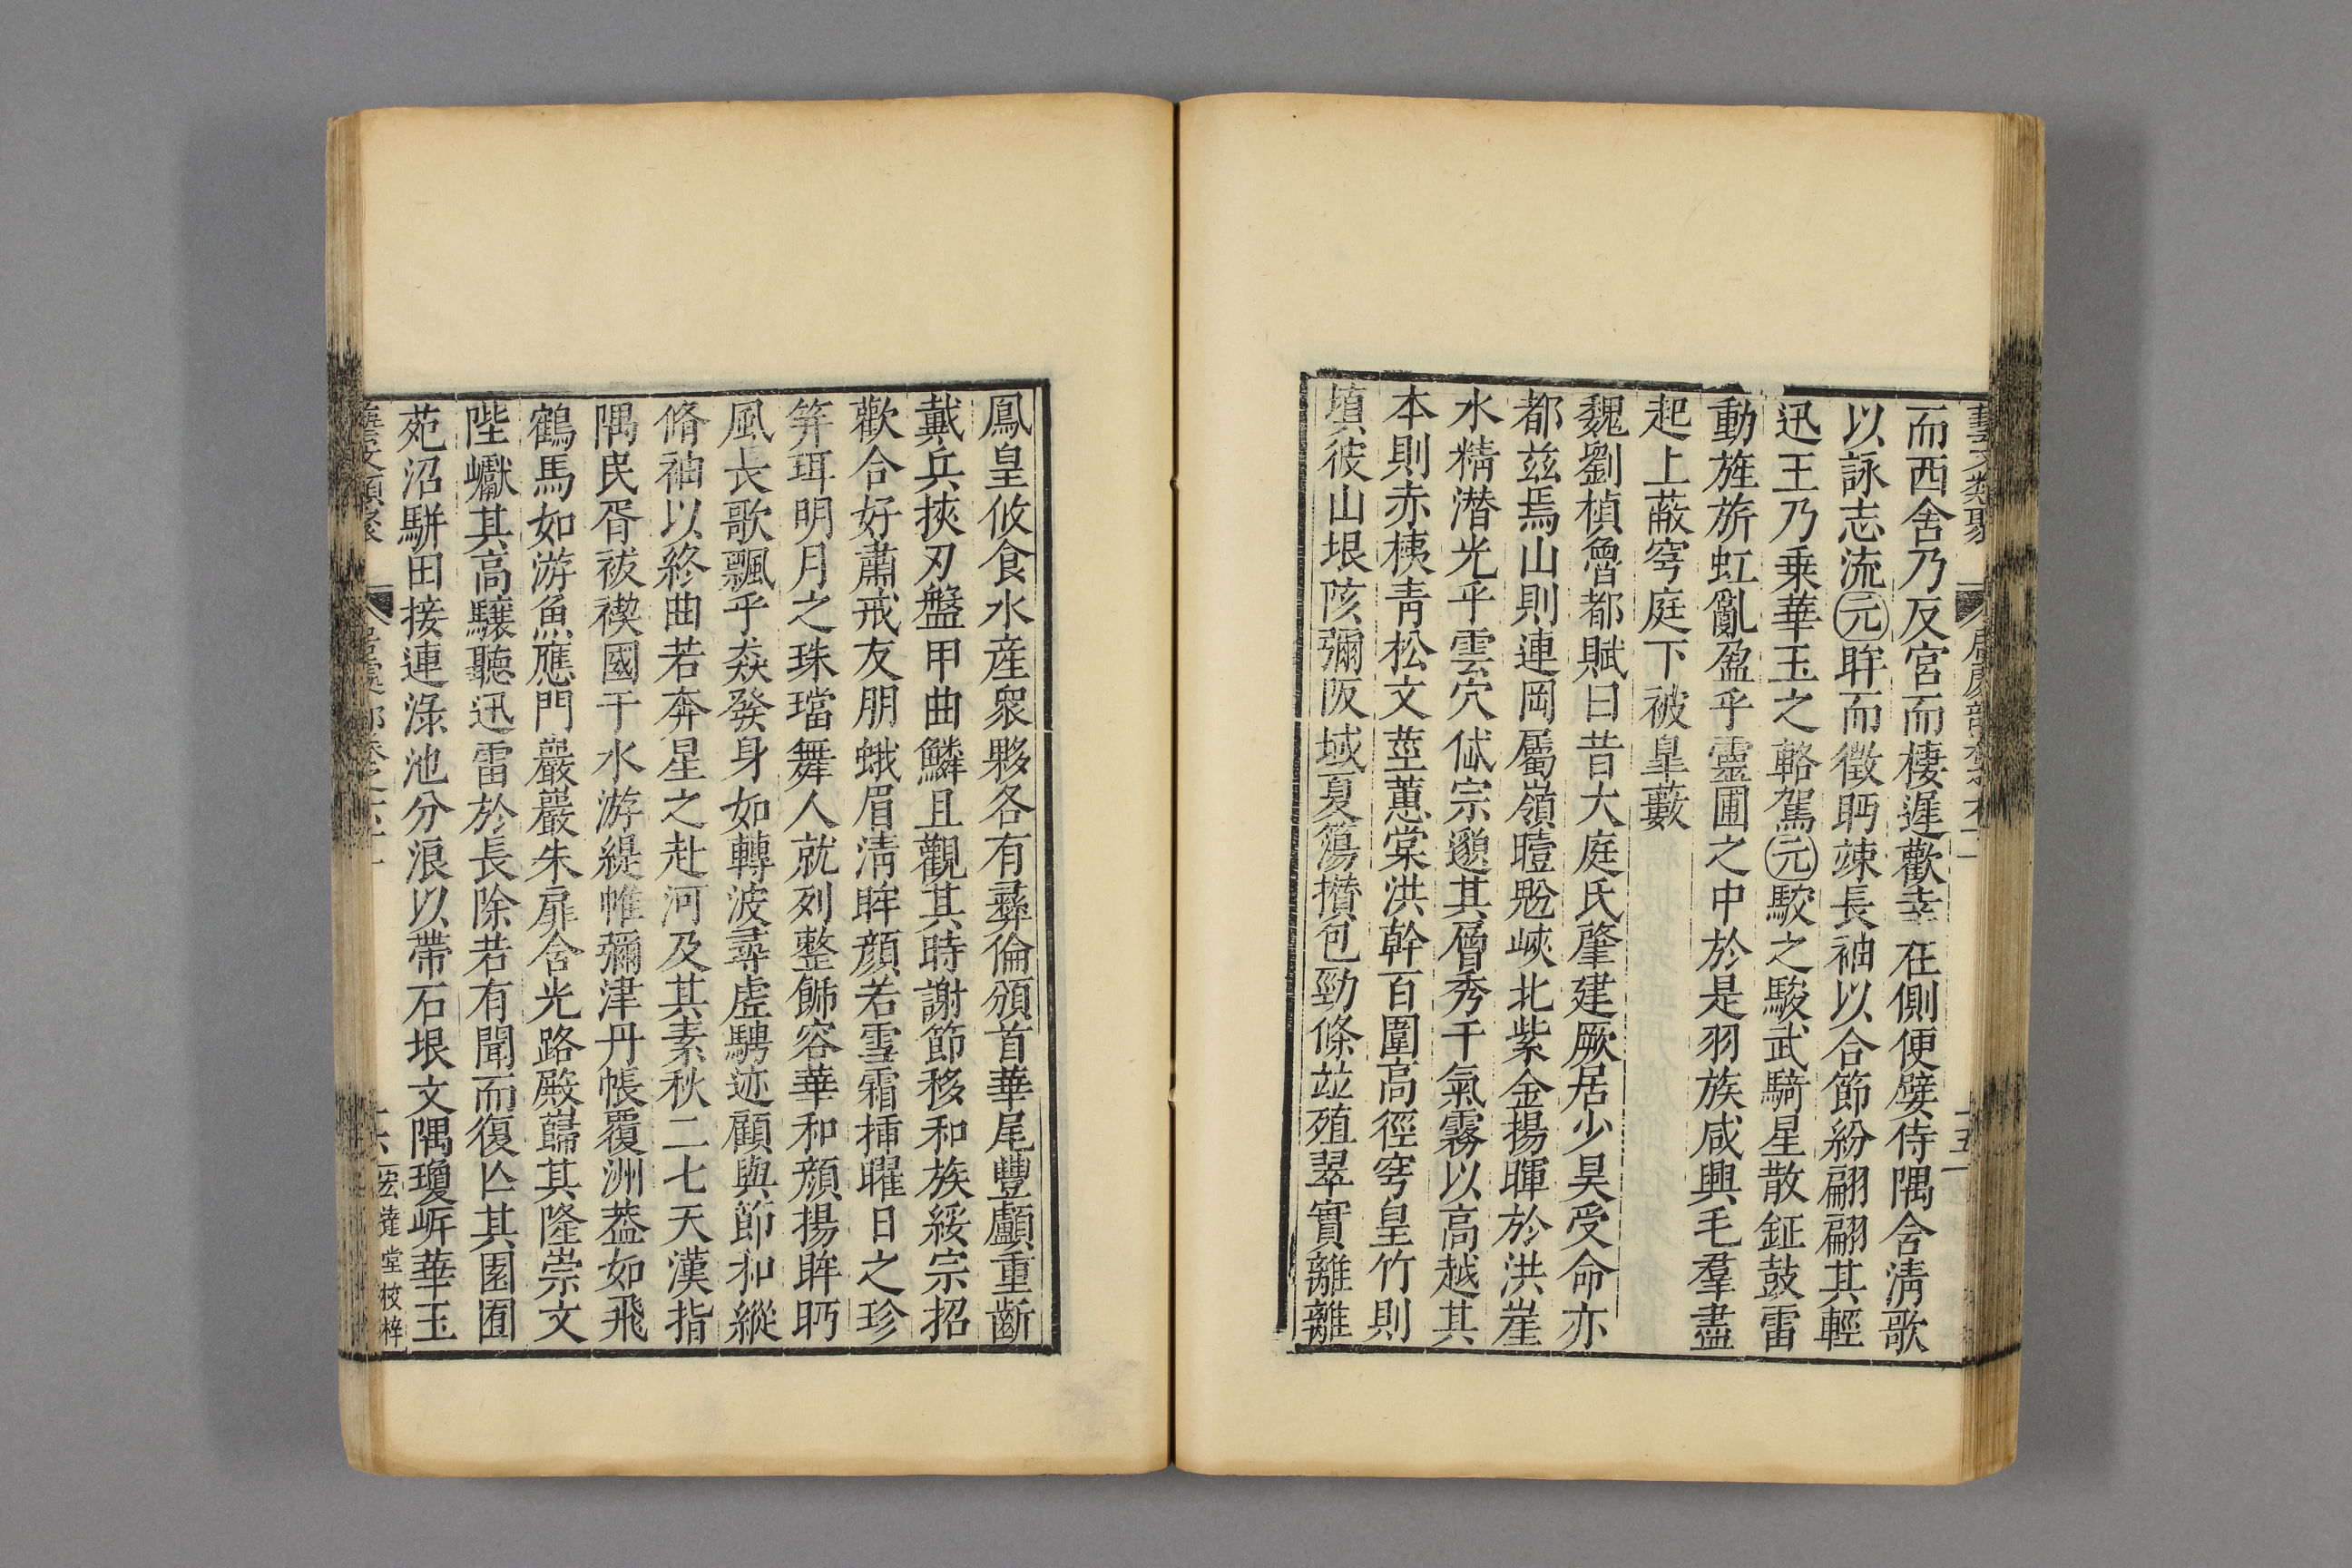 藝文類聚 居處部卷六十一 十五
而西舍乃反宮而棲遲歡幸在側便嬖侍隅含淸歌
以詠志流元眸而微眄竦長袖以合節紛翩翩其輕
迅王乃乗華玉之輅駕元駮之駿武騎星散鉦鼓雷
動旌旂虹亂盈乎靈圃之中於是羽族咸興毛羣盡
起上蔽穹庭下被臯藪
魏劉楨魯都賦曰昔大庭氏肇建厥居少昊受命亦
都兹焉山則連岡屬嶺暳䰡峽北紫金揚暉於洪崖
水精潜光乎雲穴岱宗邈其層秀干氣霧以高越其
本則赤桋靑松文莖蕙棠洪幹百圍高徑穹皇竹則
填彼山垠陔彌阪域夏簜攢包勁條竝殖翠實離離
鳳皇攸食水産衆夥各有彞倫頒首華尾豐顱重齗
戴兵挾刃盤甲曲鱗且觀其時謝節移和族綏宗招
歡合好肅戒友朋蛾眉淸眸顔若雪霜揷曜日之珍
笄珥明月之珠璫舞人就列整飾容華和顔揚眸眄
風長歌飄乎猋發身如轉波尋虛騁迹顧與節和縱
脩袖以終曲若奔星之赴河及其素秋二七天漢指
隅民胥祓禊國于水游緹帷彌津丹帳覆洲葢如飛
鶴馬如游魚應門巖巖朱扉含光路殿巋其隆崇文
陛巘其高驤聽迅雷於長除若有聞而復亾其園囿
苑沼駢田接連淥池分浪以帶石垠文隅瓊岓華玉
藝文類聚 居處部卷六十一 十六 宏達堂校梓